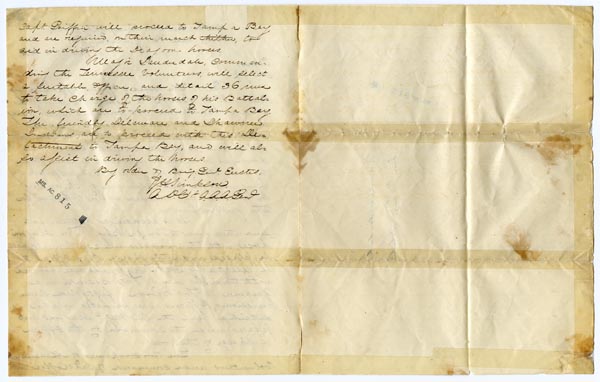 Capt Griffin will proceed to Tampa Bay
and are required, on their march thither, to
aid in driving the Dragoon horses
Major Lauderdale, Comman-
ding the Tennessee Volunteers, will select
a suitable officer and detail 36 men
to take charge of the horses of his Battal-
ion, which are to proceed to Tampa Bay
The friendly Delaware and Shawnee
Indians are to proceed with this De-
tachment to Tampa Bay, and will al-
so assist in driving the horses
By order of Brig Genl Eustis.
815